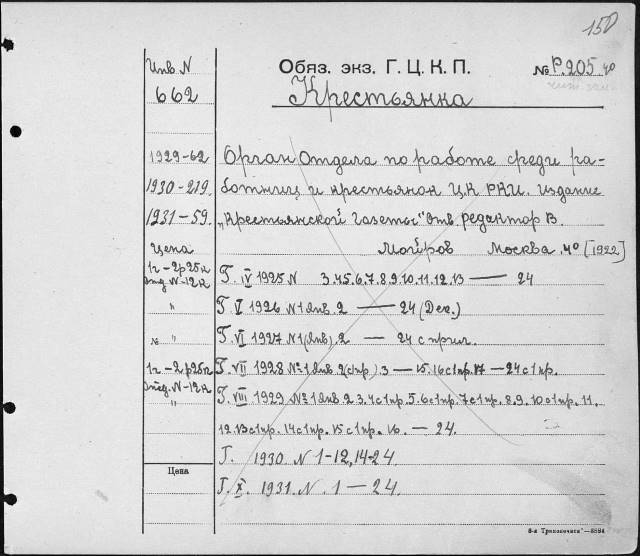 150
Инв N
662
Обяз. экз. Г. Ц. К. П.
№ Р.205 40
Крестьянка
1929-62
1930-219.
1931-59.
Орган Отдела по работе среди ра-
ботниц и крестьянок ЦК РКП. издание
„Крестьянской Газеты" отв. редактор В.
Мойров Москва. 4º [1922]
Цена
1г-2р25к
отд. N-12к
"
№ "
1г-2р25к
отд. N-12к
"
Г. IV 1925 N 3.4.5.6.7.8.9.10.11.12.13 — 24
Г. V 1926 N 1 Янв. 2 — 24 (Дек.)
Г. VI 1927 N 1 (Янв). 2 — 24 с прил.
Г. VII 1928 Nº 1 Янв 2(с пр) 3 — 15. 16 с 1 пр. 17 — 24 с 1 пр.
Г. VIII 1929 Nº 1 Янв 2 3.4 с 1 пр. 5.6 с 1 пр. 7 с 1 пр. 8.9. 10 с 1 пр. 11.
12.13 с 1 пр. 14 с 1 пр. 15 с 1 пр. 16. — 24.
Г. 1930. N 1-12, 14-24.
Г. X. 1931. N. 1 — 24.
Цена